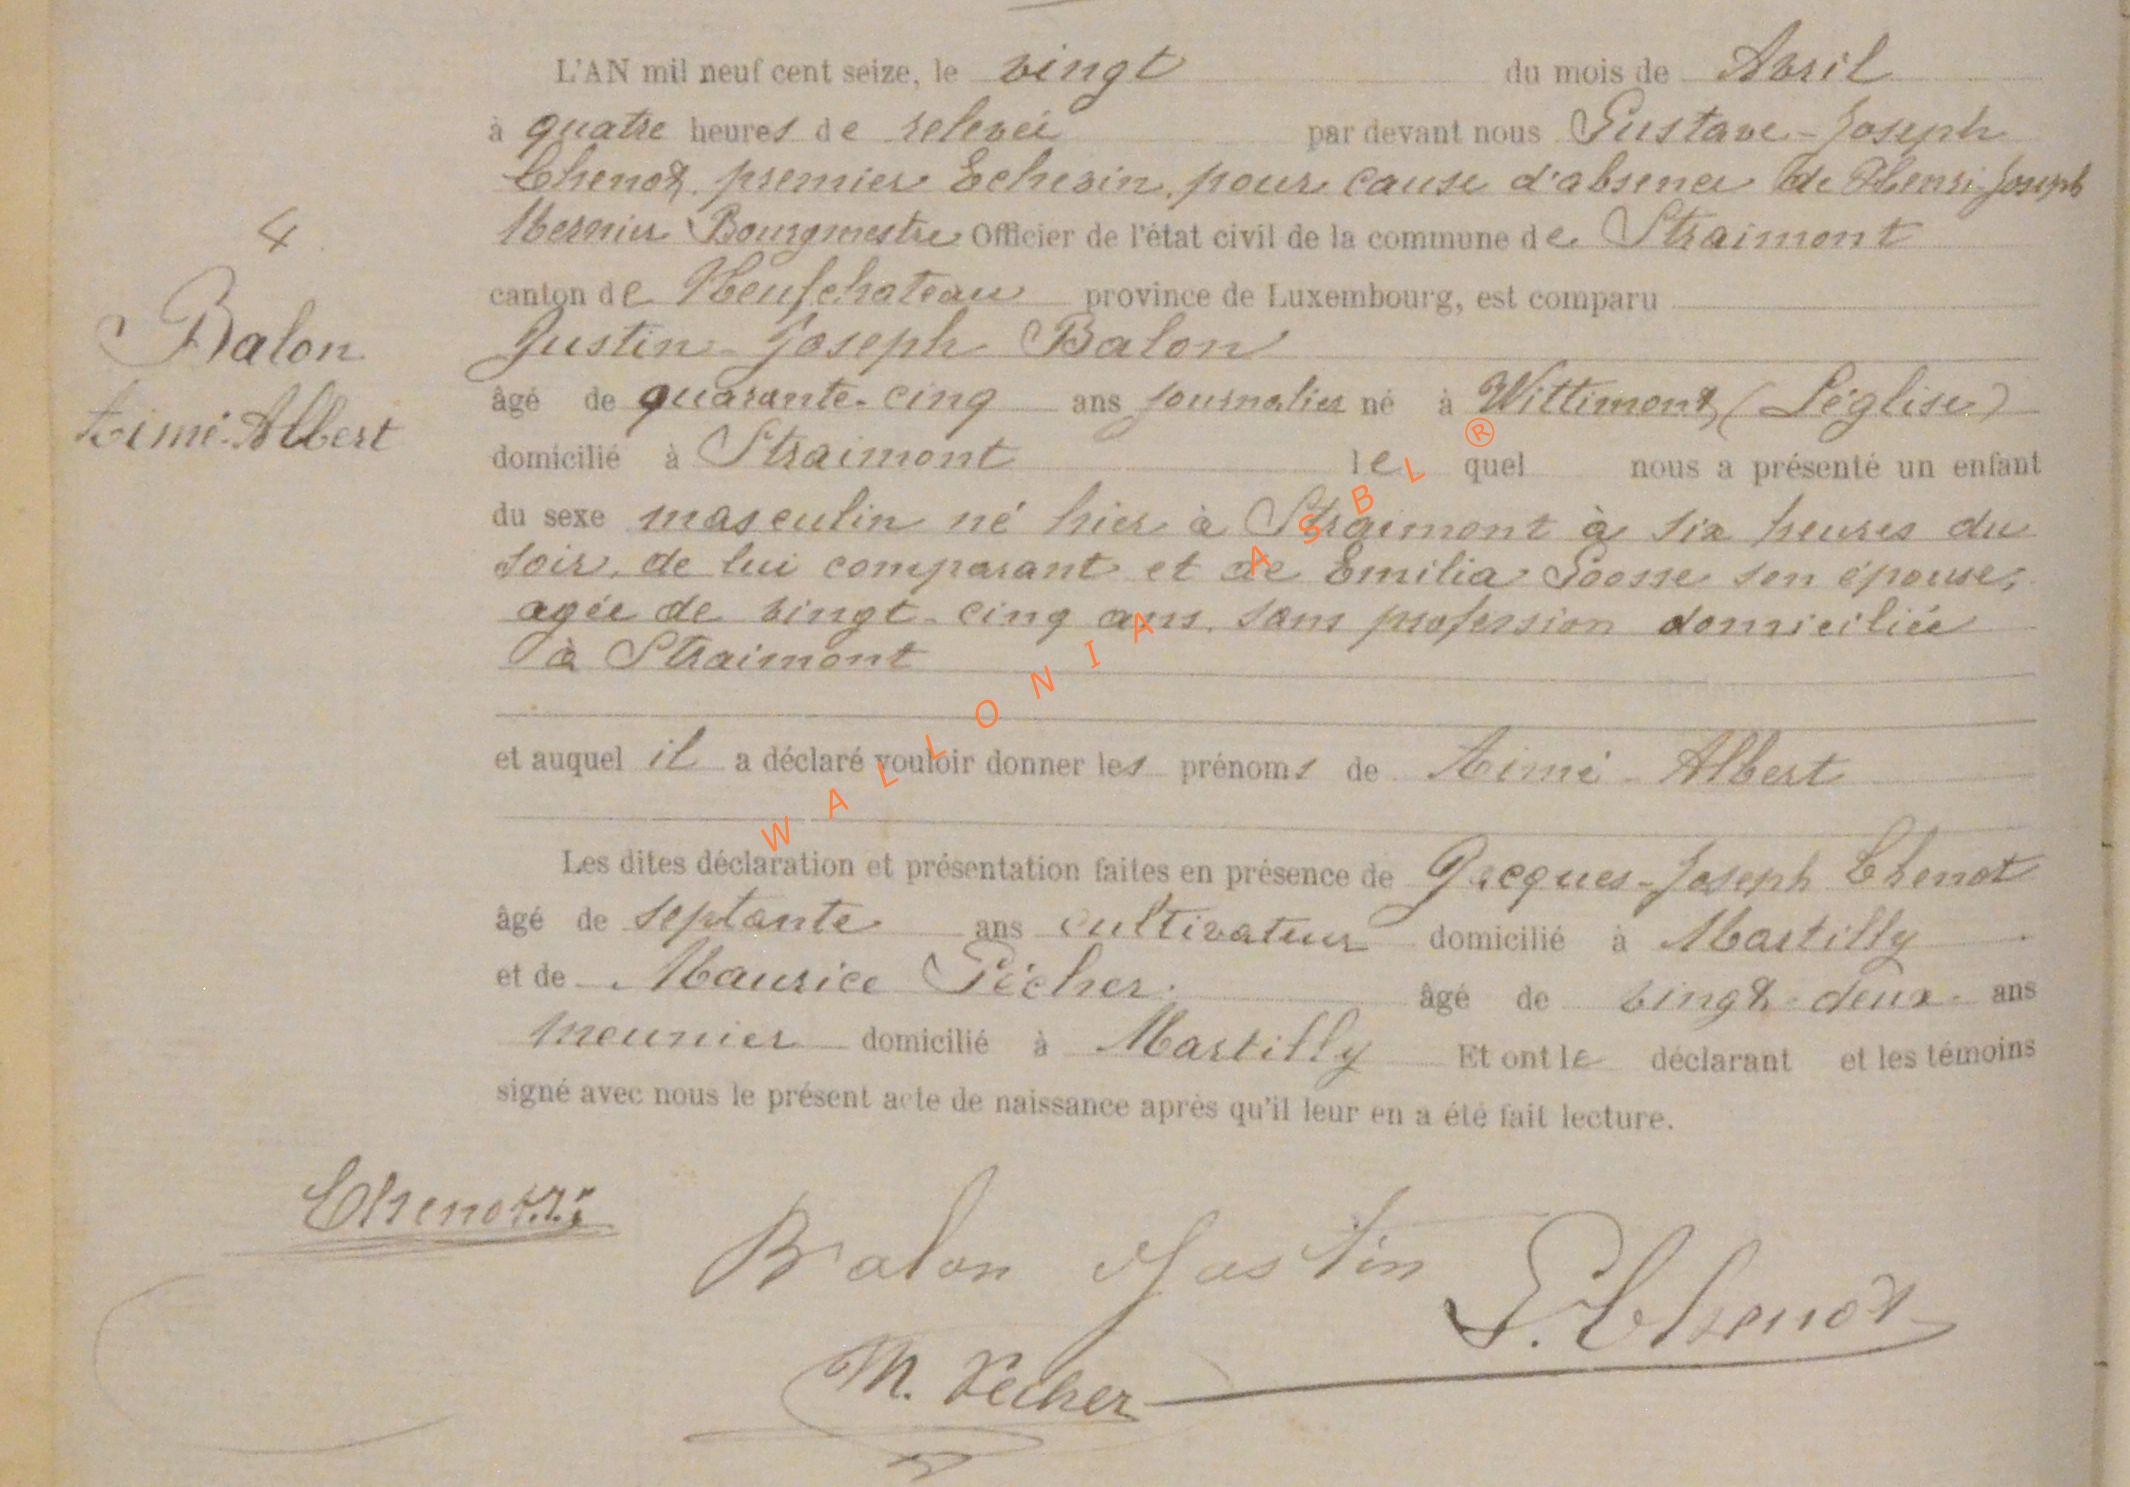 L'AN mil neuf cent seize, le vingt du mois de Avril
à quatre heures de relevée par devant nous Gustave-Joseph
Chenot, premier Echevin, pour cause d'absence de Henri-Joseph
4 Mernier Bourgmestre Officier de l'état civil de la commune de Straimont
canton de Neufchateau province de Luxembourg, est comparu
Balon Justin-Joseph Balon
Aimé-Albert âgé de quarante-cinq ans journalier né à Wittimont (Léglise)
domicilié à Straimont lequel nous a présenté un enfant
du sexe masculin né hier à Straimont à six heures du
soir, de lui comparant et de Emilia Goosse son épouse,
agée de vingt-cinq ans, sans profession domiciliée
à Straimont
et auquel il a déclaré vouloir donner les prénoms de Aimé-Albert
Les dites déclaration et présentation faites en présence de Jacques-Joseph Chenot
âgé de septante ans cultivateur domicilié à Martilly
et de Maurice Pécher âgé de vingt-deux ans
meunier domicilié à Martilly Et ont le déclarant et les témoins
signé avec nous le présent acte de naissance après qu'il leur en a été fait lecture.
Chenot
Balon Justin
G. Chenot
M. Pecher
WALLONIA ASBL ®